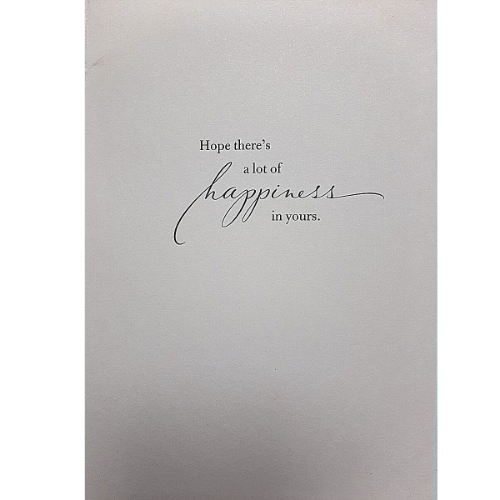 Hope there's
a lot of
happiness
in yours.